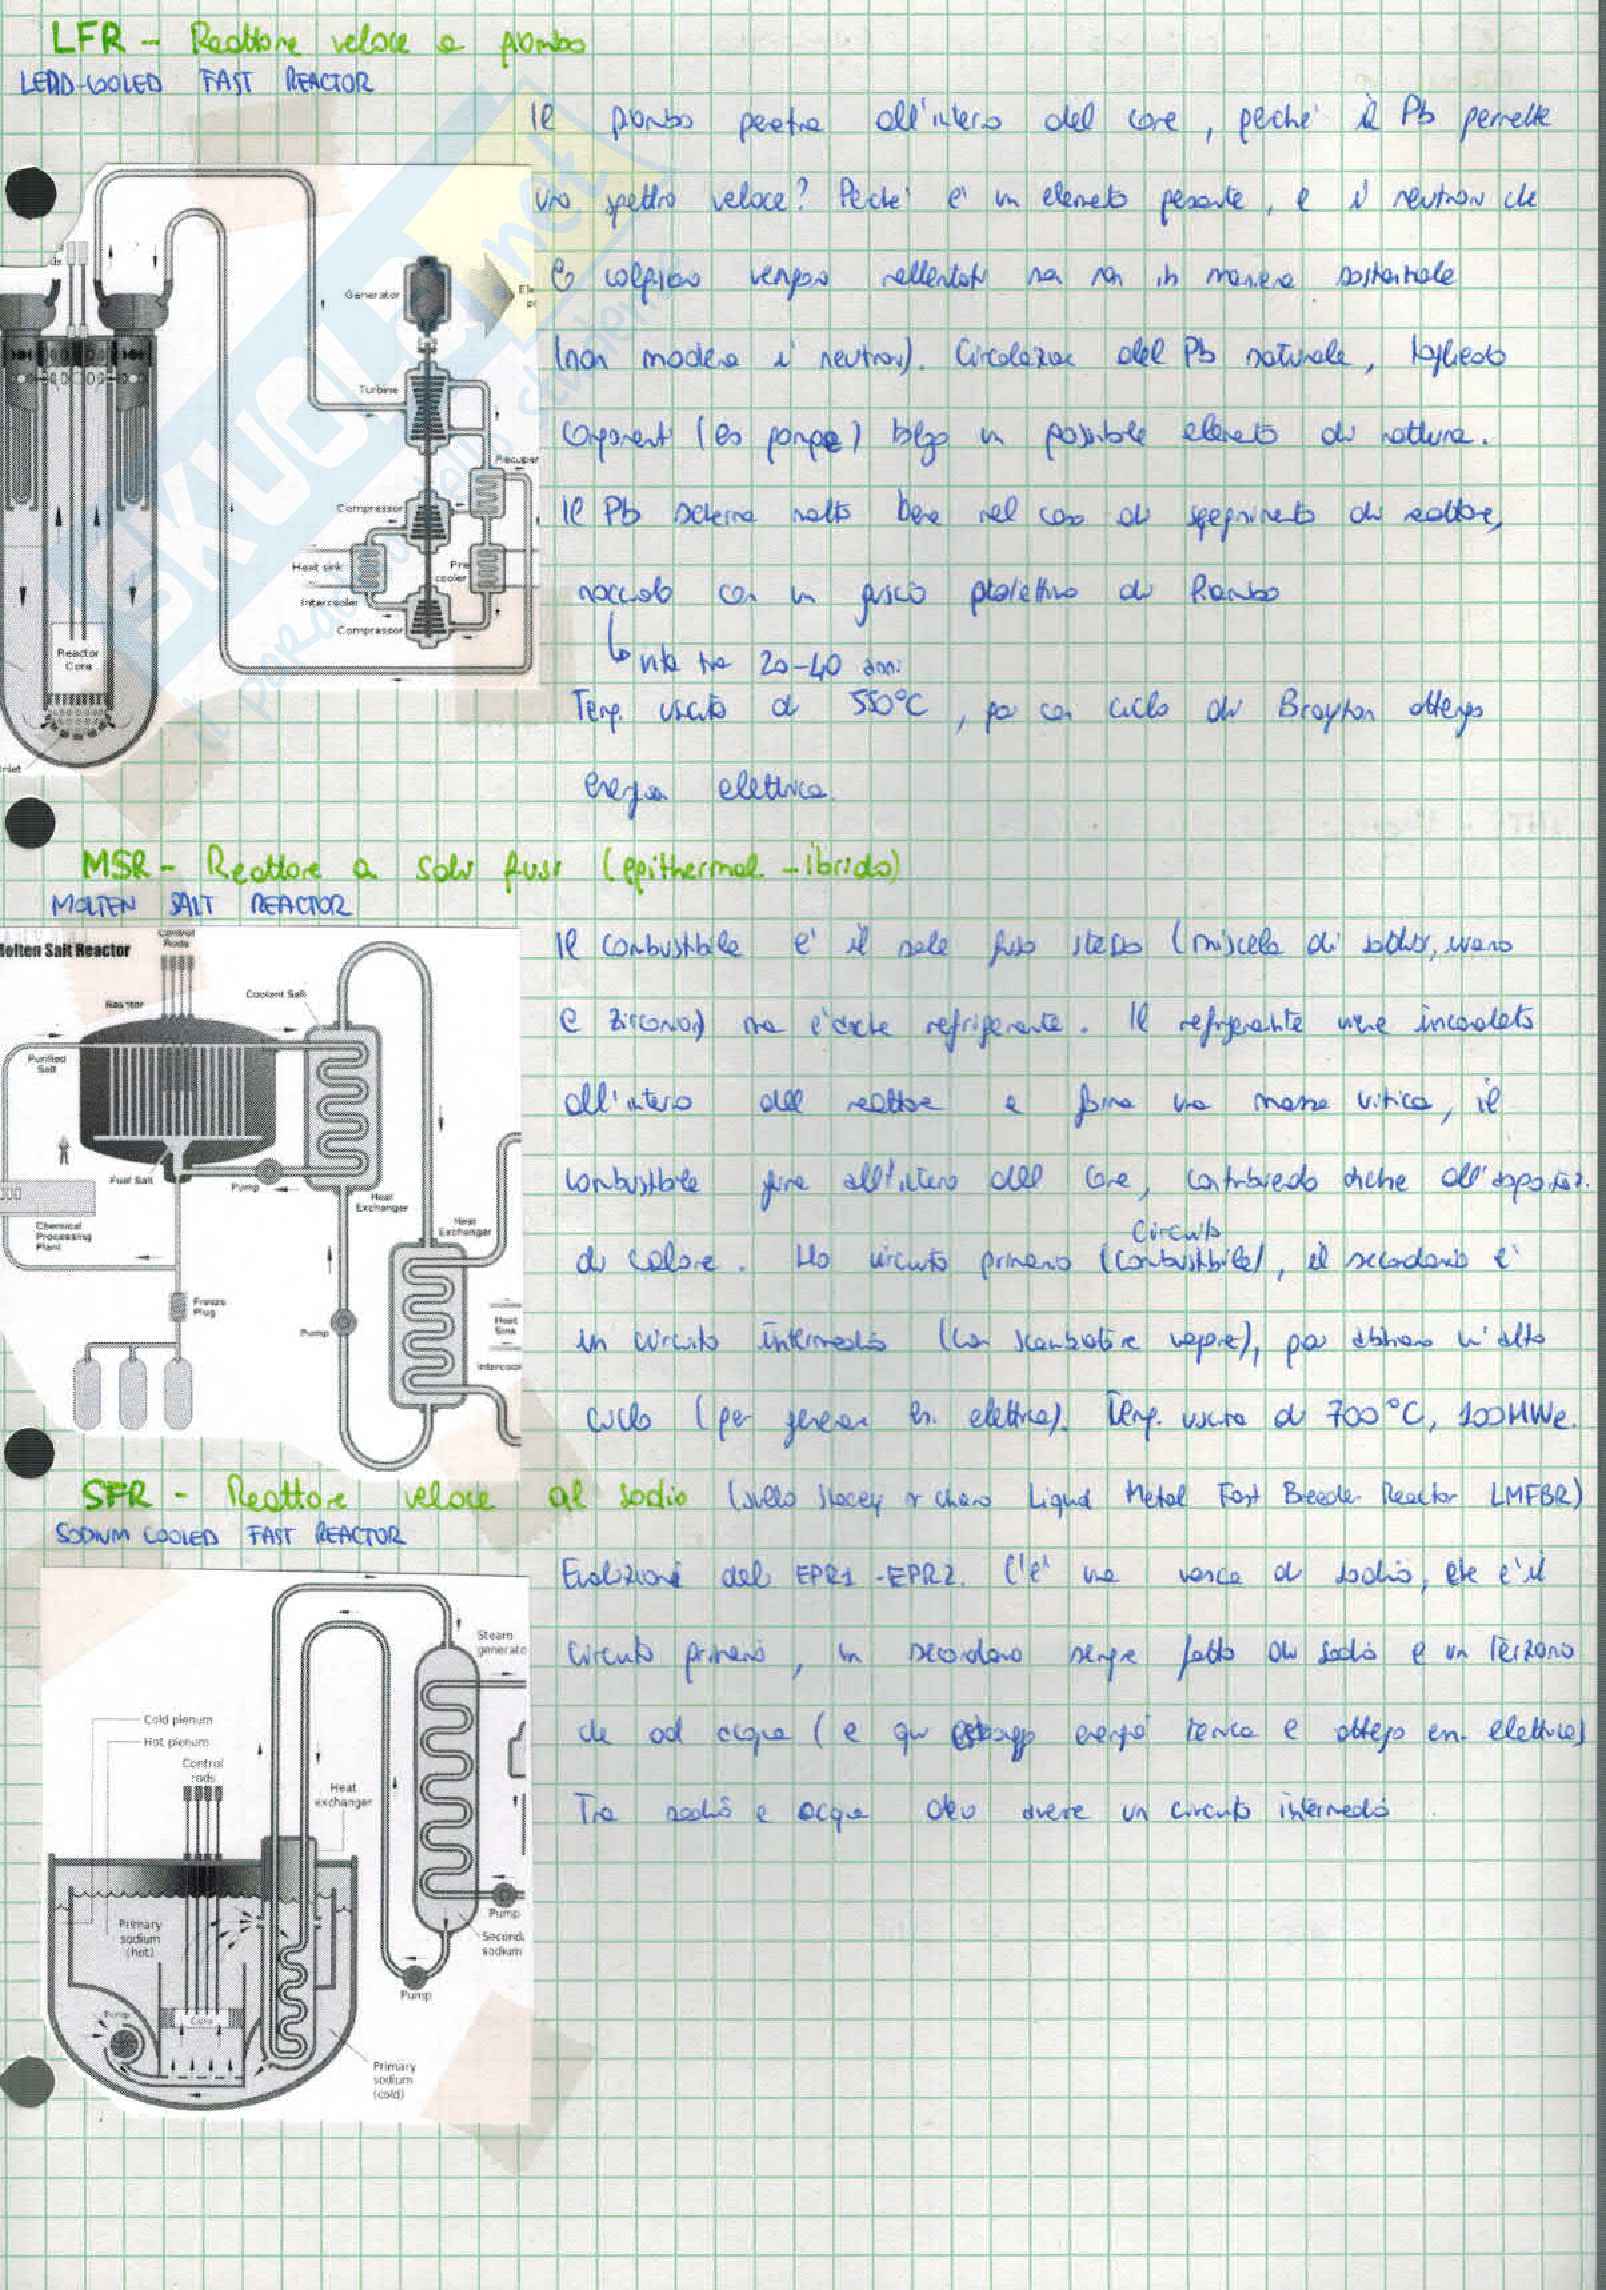 LFR - Reattore veloce a piombo
LEAD-COOLED FAST REACTOR
Il piombo penetra all'interno del core, perché il Pb permette
uno spettro veloce? Perché è un elemento pesante, e i neutroni che
lo colpiscono vengono rallentati ma non in maniera sostanziale
(non modera i neutroni). Circolazione del Pb naturale, togliendo
componenti (es pompe) tolgo un possibile elemento di rottura.
Il Pb scherma molto bene nel caso di spegnimento di reattore,
nocciolo con un guscio protettivo di Piombo
vita tra 20-40 anni
Temp. uscita di 550°C, poi con ciclo di Brayton ottengo
energia elettrica.
Generator
Ele
Turbine
Recuper
Compressor
Heat sink
Pre
cooler
Intercooler
Compressor
Reactor
Core
Inlet
SKUOLA.net
MSR - Reattore a Sali fusi (epithermal - ibrido)
MOLTEN SALT REACTOR
Il combustibile è il sale fuso stesso (miscela di sodio, uranio
e zirconio) ma è anche refrigerante. Il refrigerante viene incanalato
all'interno del reattore e forma una massa critica, il
combustibile fluisce all'interno del core, contribuendo anche all'asportaz.
Circuito
di calore. Ho circuito primario (combustibile), il secondario è
un circuito intermedio (con scambiatore vapore), poi abbiamo un altro
ciclo (per generare en. elettrica). Temp. uscita di 700°C, 100MWe.
Molten Salt Reactor
Control
Rods
Coolant Salt
Reactor
Purified
Salt
Fuel Salt
Pump
Heat
Exchanger
Heat
Exchanger
Chemical
Processing
Plant
Freeze
Plug
Pump
Heat
Sink
Intercool
SFR - Reattore veloce al sodio (sullo Stacey è chiamato Liquid Metal Fast Breeder Reactor LMFBR)
SODIUM COOLED FAST REACTOR
Evoluzione del EPR1 - EPR2. C'è una vasca di sodio, che è il
circuito primario, un secondario sempre fatto di sodio e un terziario
che ad acqua (e qui energia termica e ottengo en. elettrica)
Tra sodio e acqua devo avere un circuito intermedio
Steam
generato
Cold plenum
Hot plenum
Control
rods
Heat
exchanger
Primary
sodium
(hot)
Pump
Second
sodium
Pump
Pump
Core
Primary
sodium
(cold)